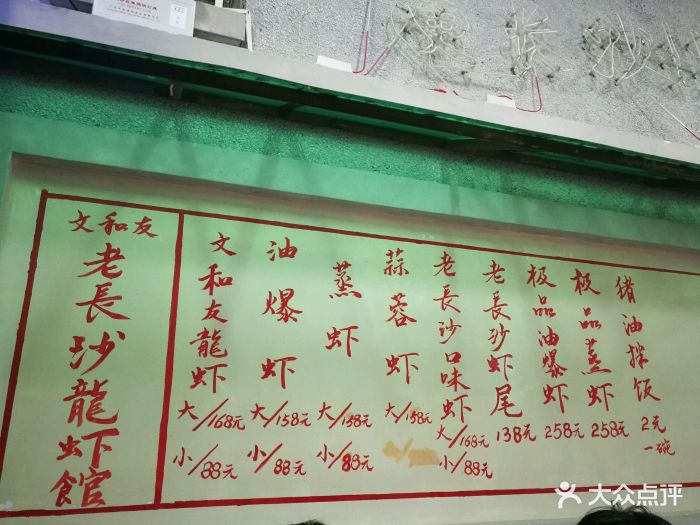 文和友
老長沙龍虾館
文和友龍虾
大/168元
小/88元
油爆虾
大/158元
小/88元
蒸虾
大/158元
小/88元
蒜蓉虾
大/158元
老長沙口味虾
大/168元
小/88元
老長沙虾尾
138元
极品油爆虾
258元
极品蒸虾
258元
猪油拌饭
2元
一碗
大众点评